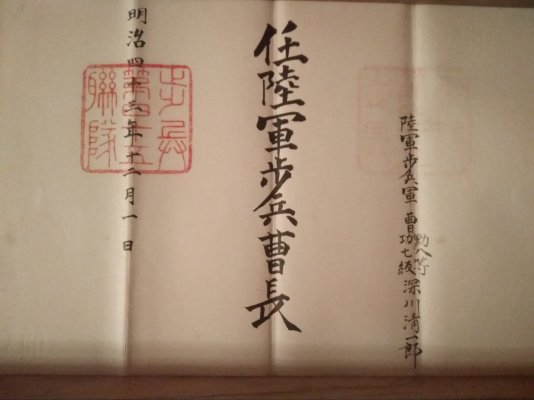 陸軍步兵軍曹
勲八等
功七級
深川清一郎
任陸軍步兵曹長
明治四十三年十二月一日
步兵
第
聯隊